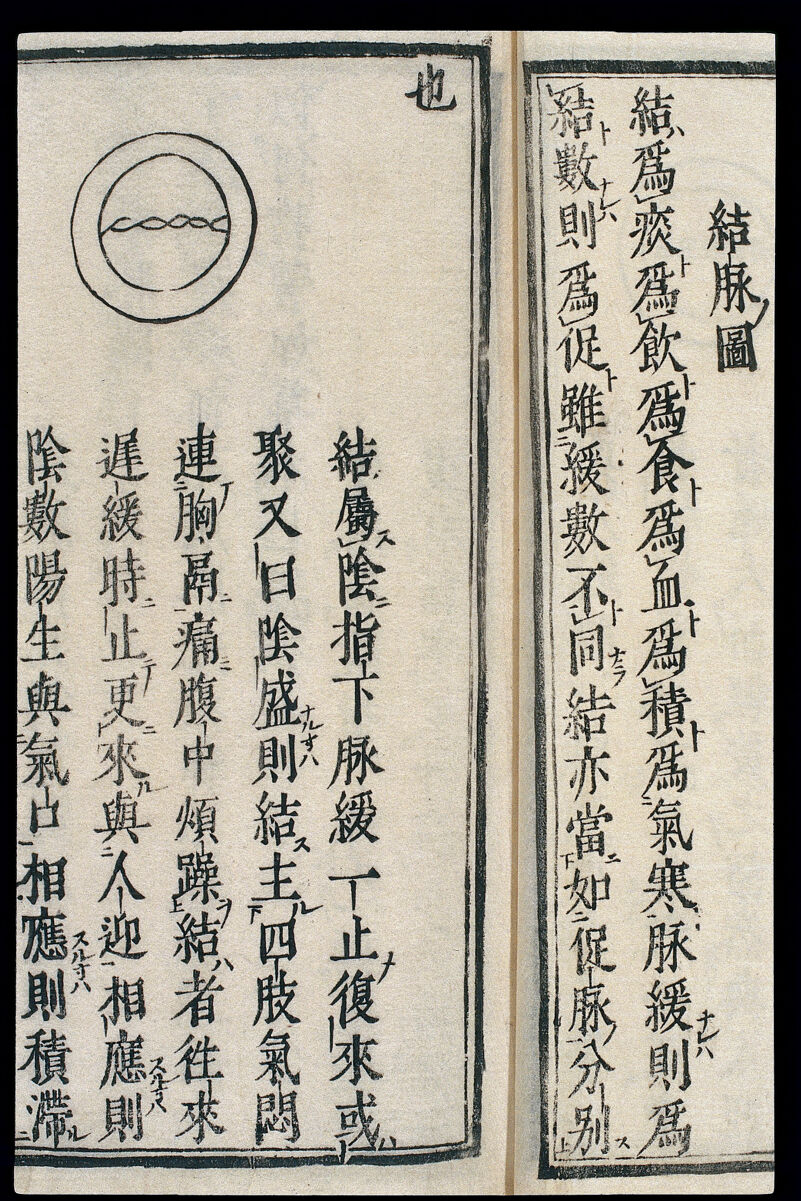 結脉圖
結爲痰爲飲爲食爲血爲積爲氣寒脉緩則爲
結數則爲促雖緩數不同結亦當如促脉分别
也
結屬陰指下脉緩一止復來或
聚又曰陰盛則結主四肢氣悶
連胸鬲痛腹中煩躁結者徃來
遲緩時止更來與人迎相應則
陰數陽生與氣口相應則積滯